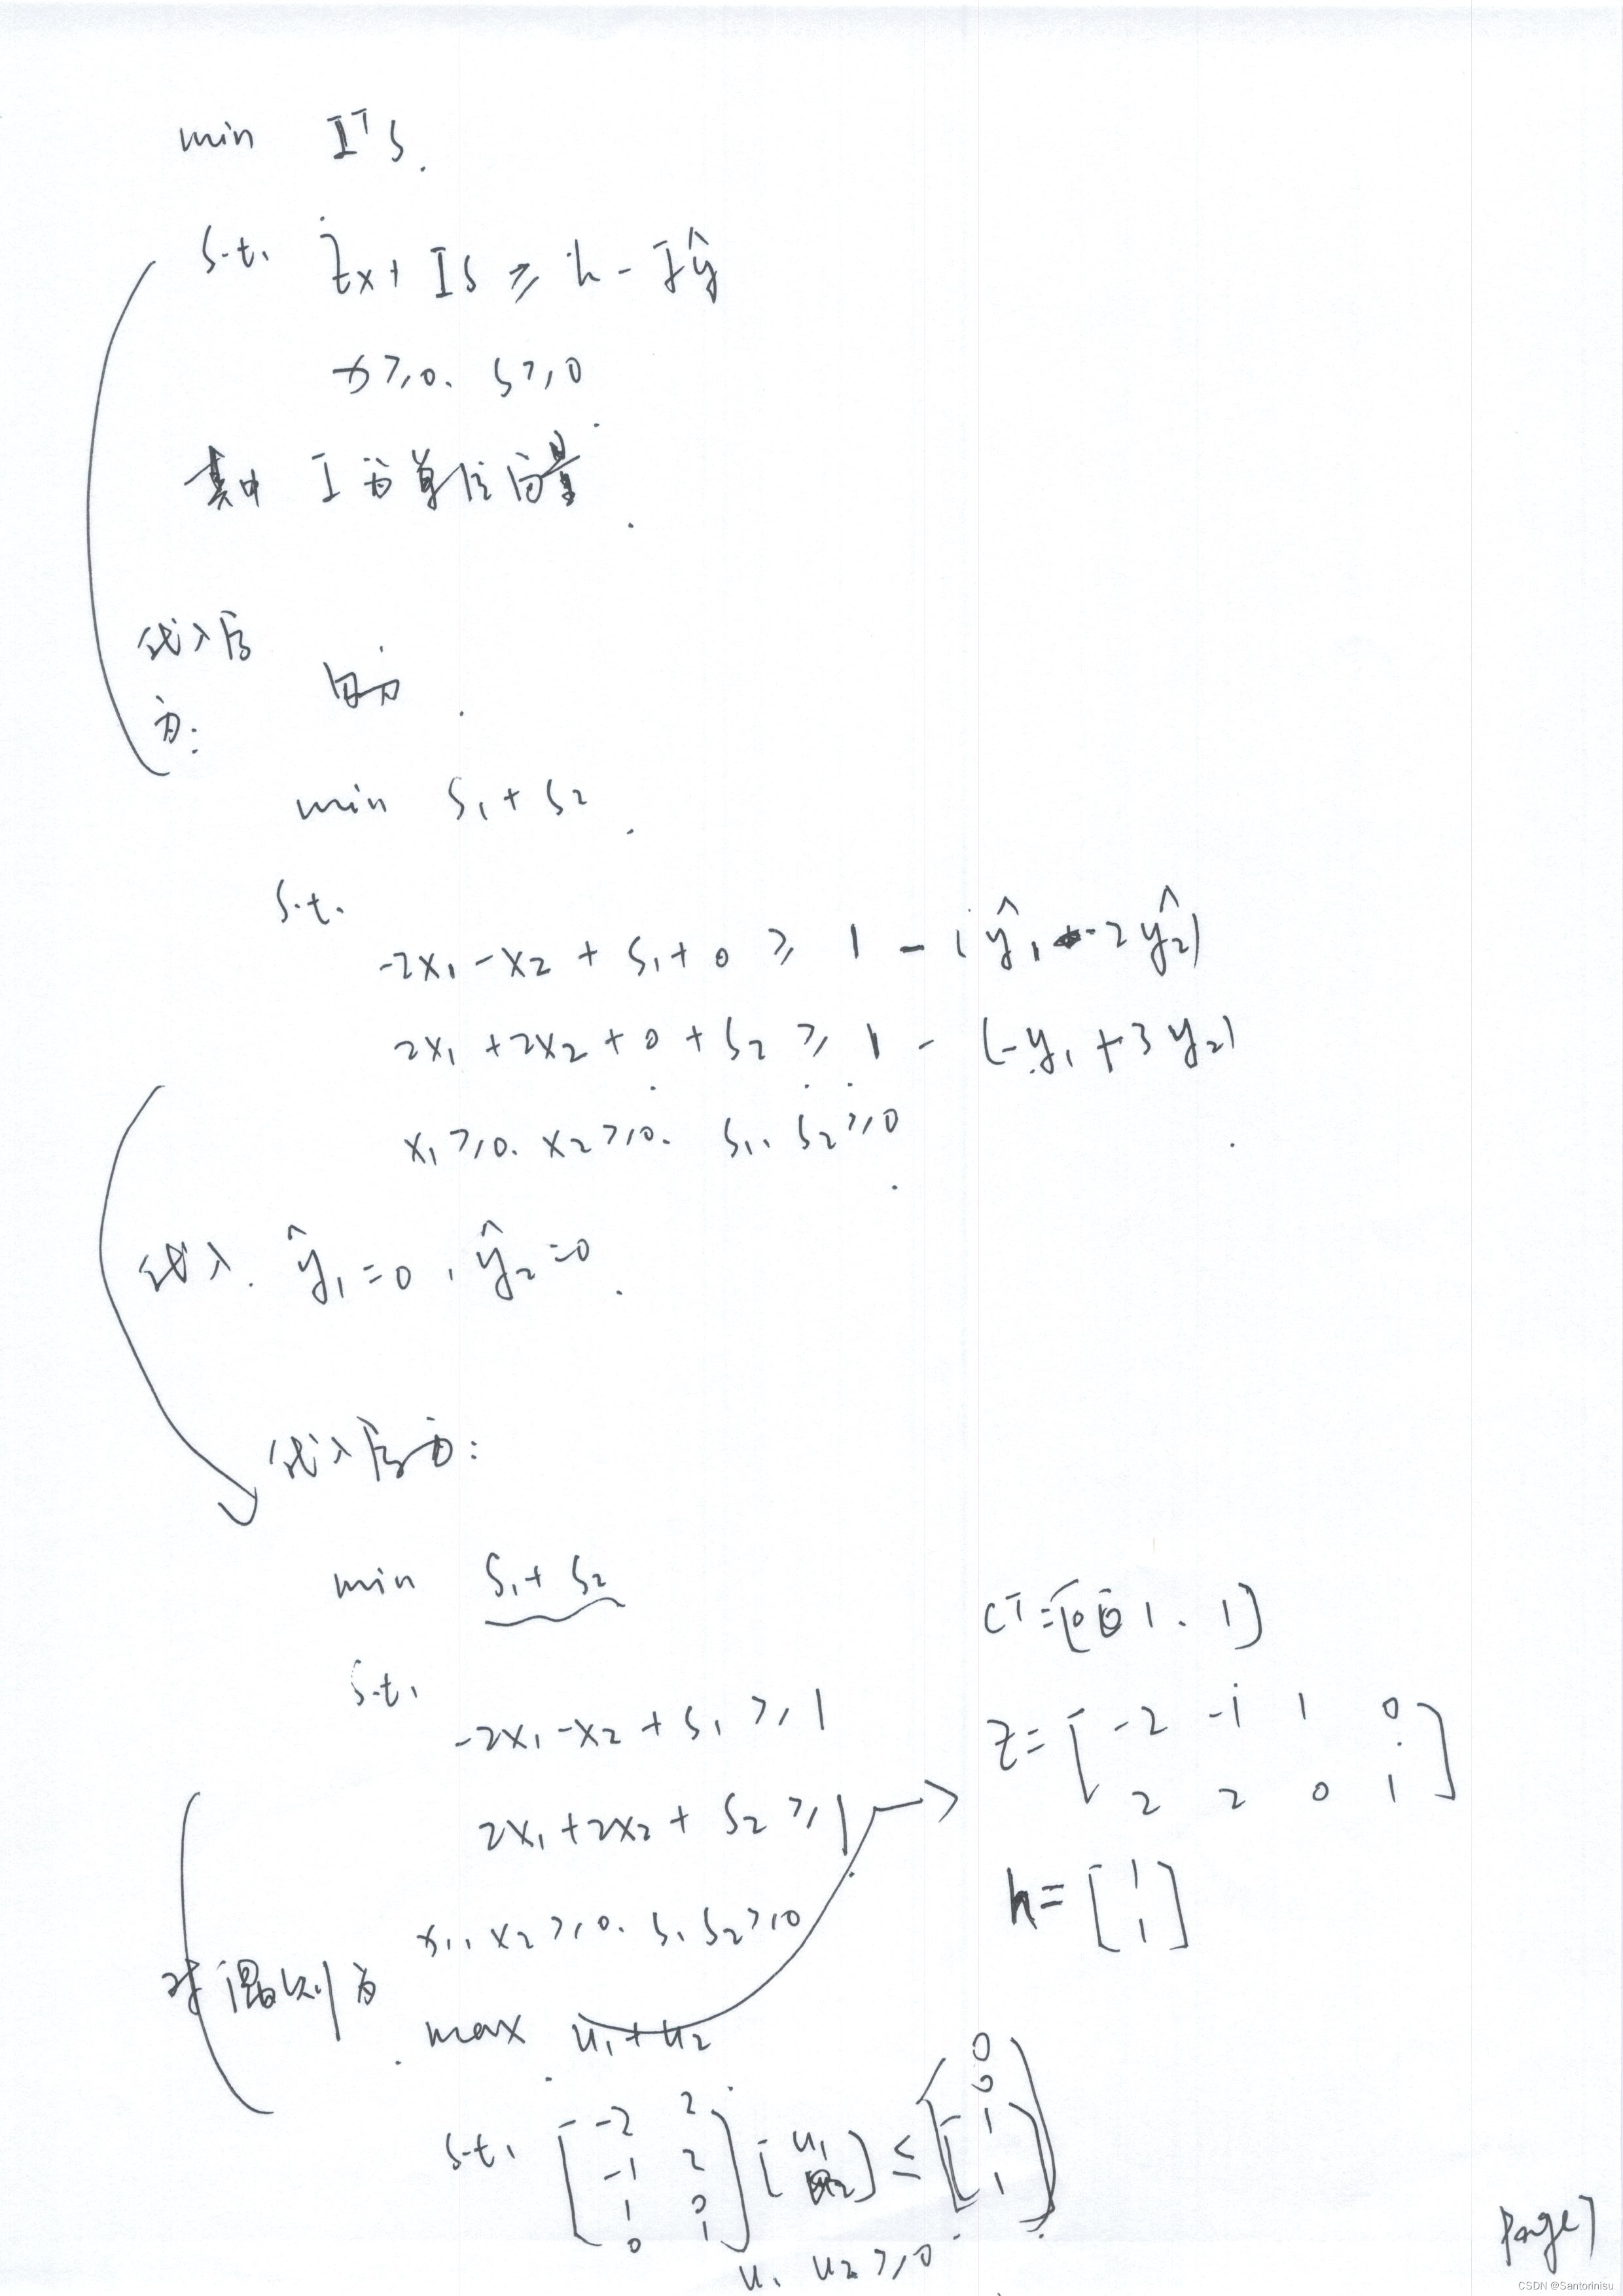 min I^T s.
s.t. Zx + Is ≥ h - Fŷ
x ≥ 0. s ≥ 0
其中 I 为单位向量
代入后
为:
min s₁ + s₂
s.t.
-2x₁ - x₂ + s₁ + 0 ≥ 1 - (ŷ₁ - 2ŷ₂)
2x₁ + 2x₂ + 0 + s₂ ≥ 1 - (-y₁ + 3y₂)
x₁ ≥ 0. x₂ ≥ 0. s₁, s₂ ≥ 0
代入. ŷ₁ = 0, ŷ₂ = 0.
代入后为:
min s₁ + s₂
s.t.
-2x₁ - x₂ + s₁ ≥ 1
2x₁ + 2x₂ + s₂ ≥ 1
x₁, x₂ ≥ 0. s₁ s₂ ≥ 0
C^T = [0 0 1. 1]
Z = [-2 -1 1 0
2 2 0 1]
h = [1
1]
对偶则为
max u₁ + u₂
s.t. [-2 2
-1 2
1 0
0 1] [u₁
u₂] ≤ [0
0
1
1]
u₁ u₂ ≥ 0
page7
CSDN @Santorinisu